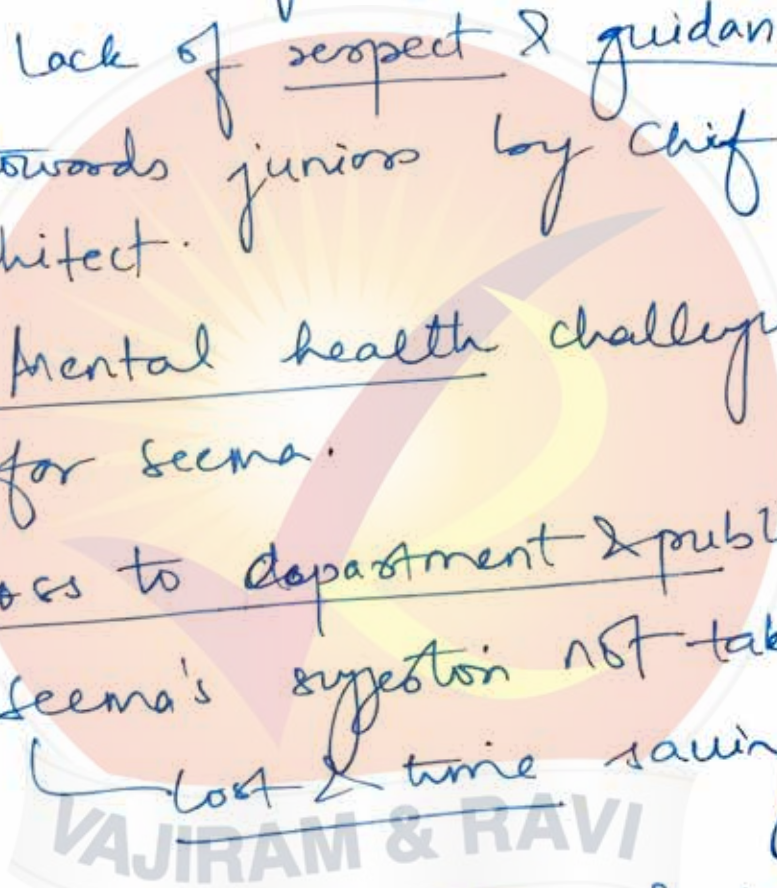 Lack of respect & guidan
towards juniors by Chif
hitect.
Mental health challeng
for seema.
oss to department & publ
seema's suggestion not tak
Cost & time savin
VAJIRAM & RAVI